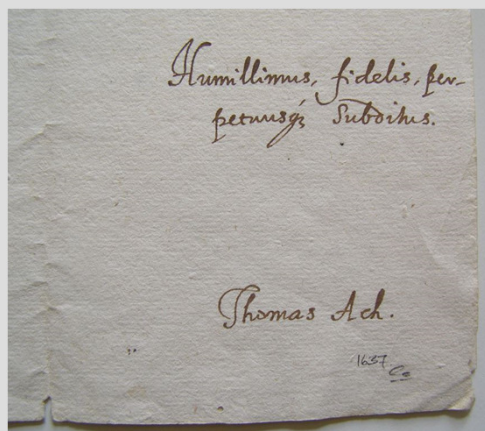 Humillimus, fidelis, per-
petuusq; Subditus.
Thomas Ach.
1637
Co